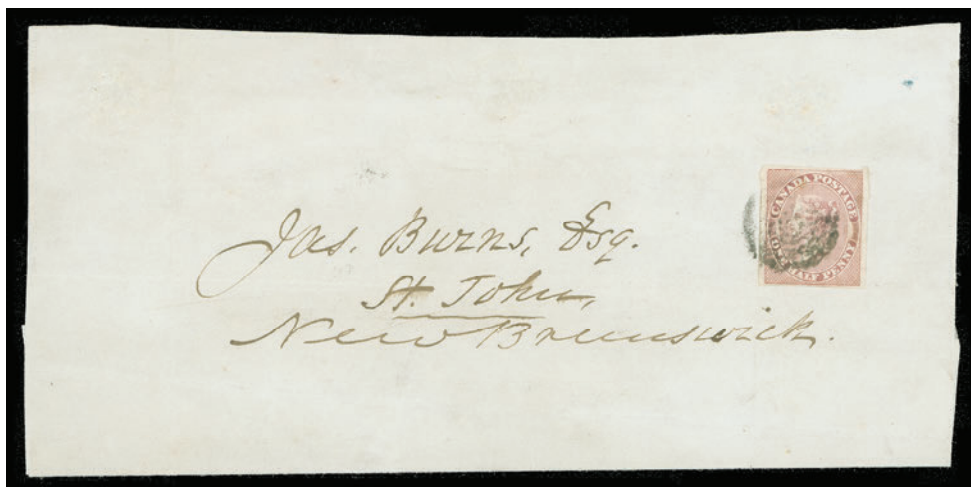 Jas. Burns, Esq.
St. John,
New Brunswick.
CANADA POSTAGE
HALF PENNY